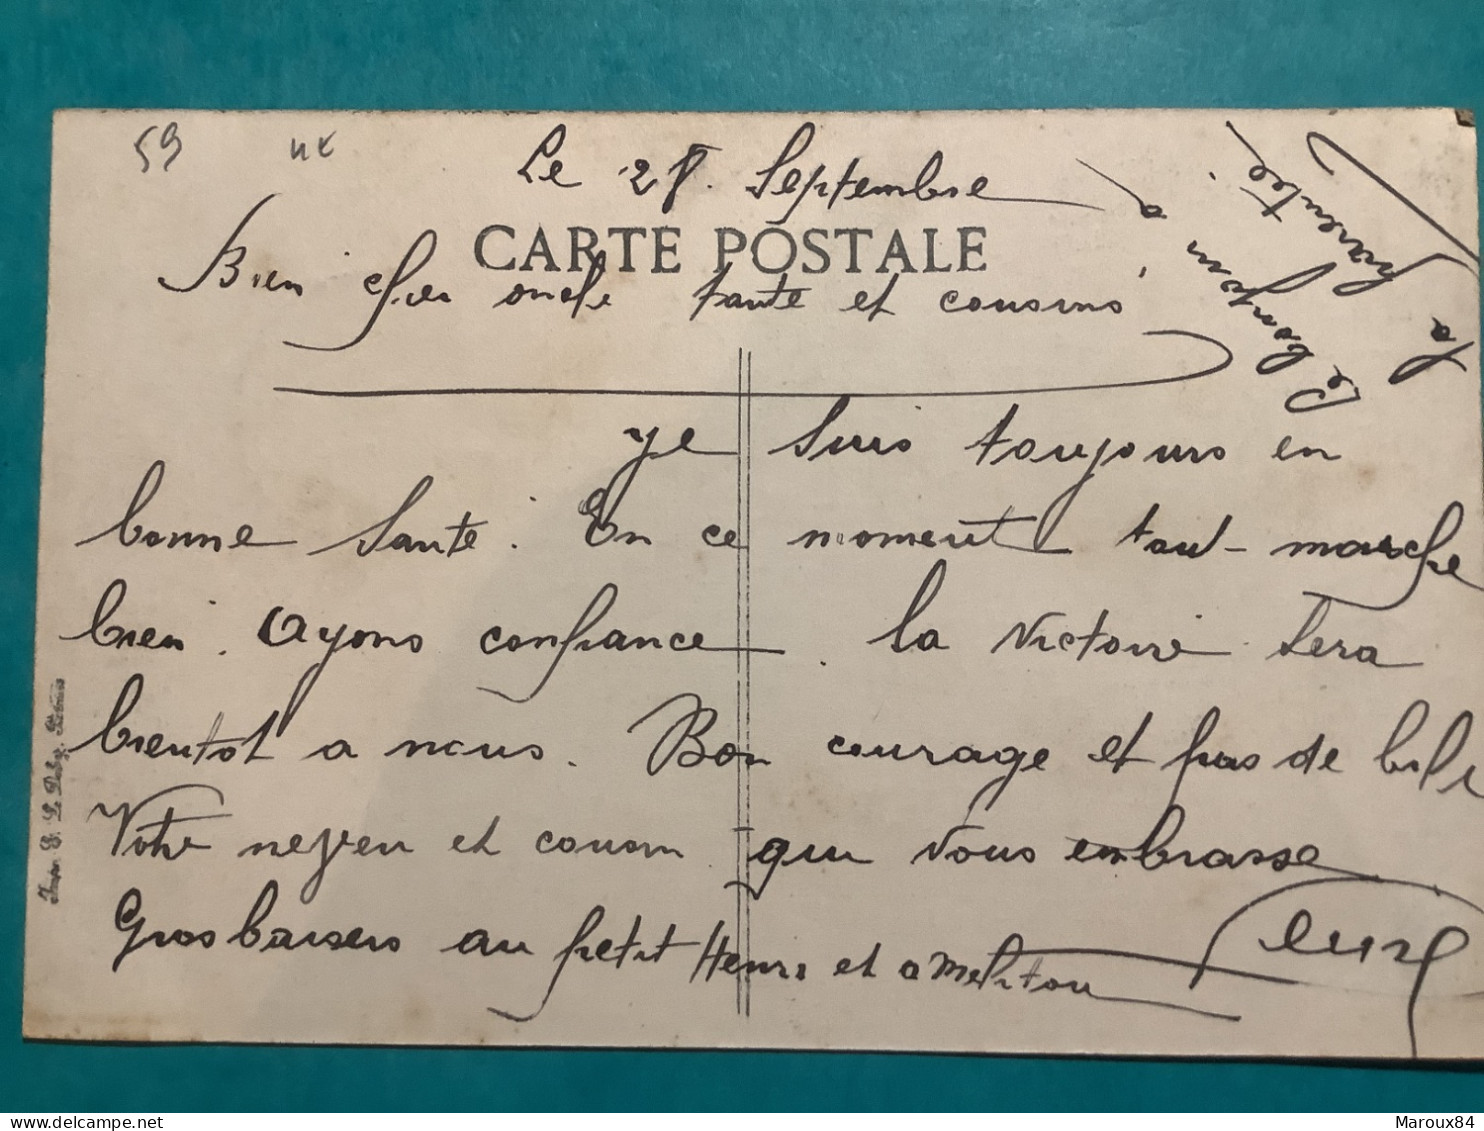 59
Le 28 Septembre
CARTE POSTALE
Bien cher oncle tante et cousins
Le bonjour a
la parenteé
ye suis toujours en
bonne santé. En ce moment tout marche
bien. Ayons confiance. la victoire sera
bientot a nous. Bon courage et pas de bile
Votre neveu et cousin qui vous embrasse
Gros baisers au petit Henri et a Meliton
Maroux84